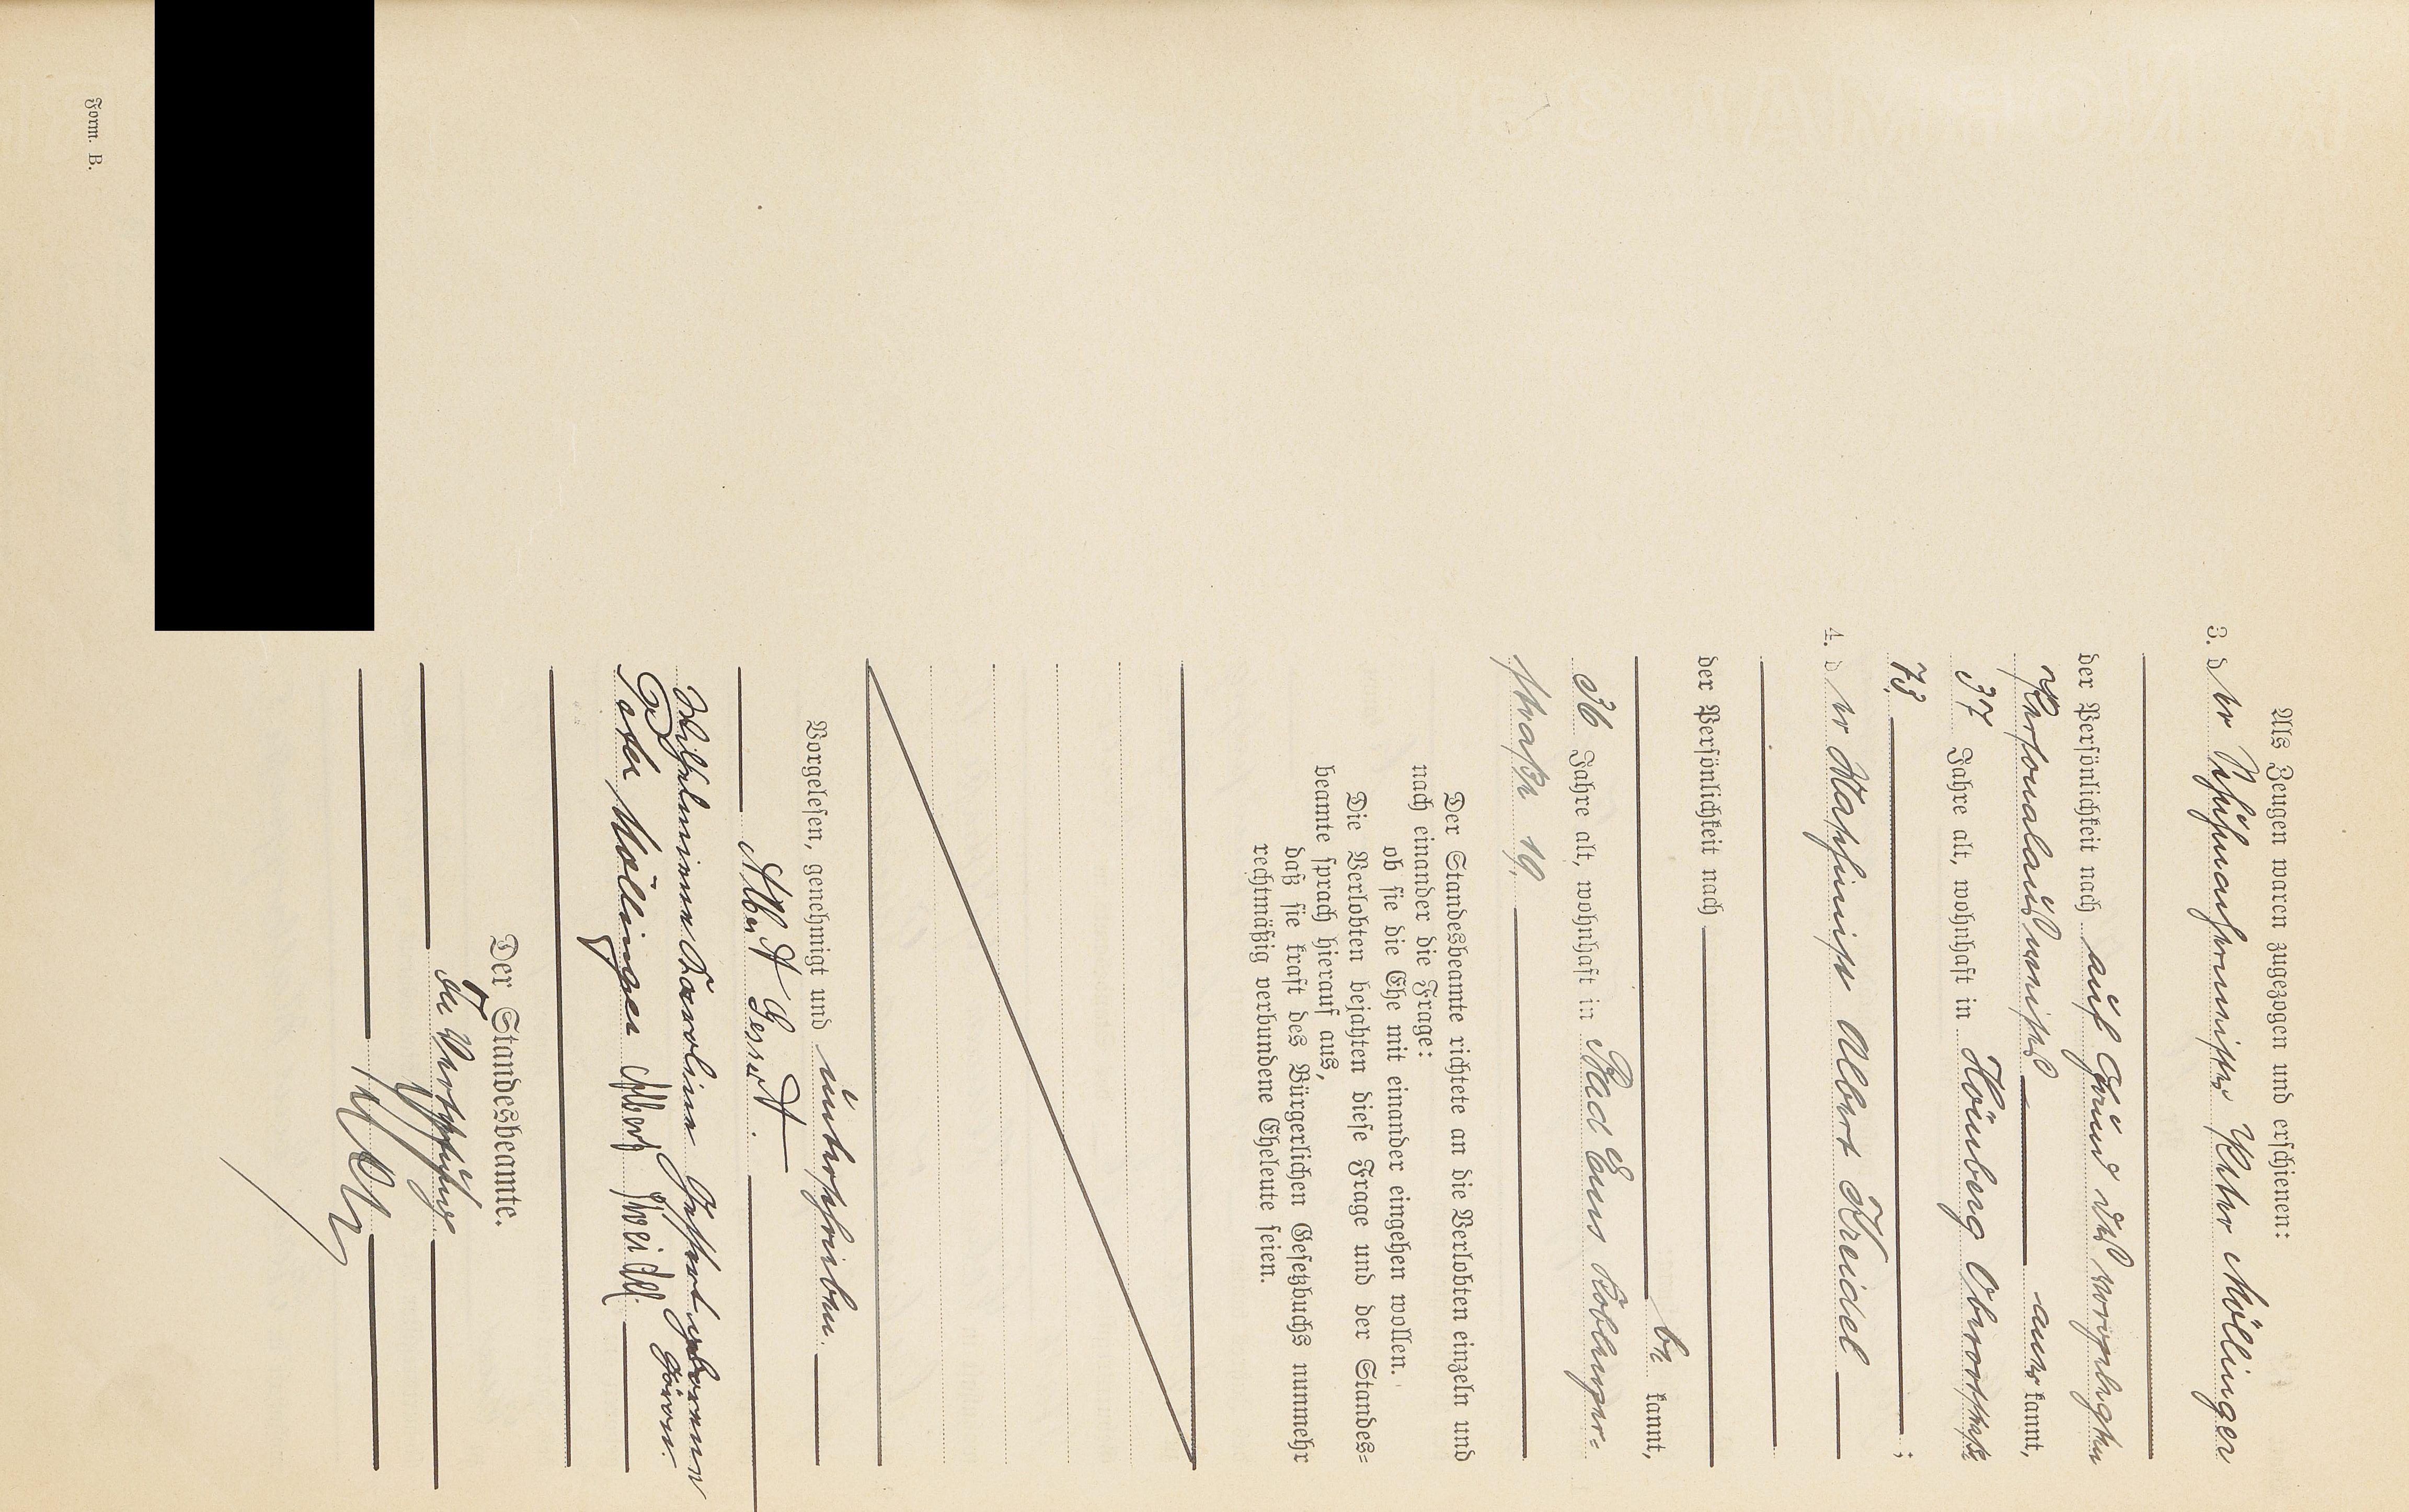 Als Zeugen waren zugezogen und erschienen:
3. der Schuhmachermeister Peter Möllinger
der Persönlichkeit nach auf Grund des vorgelegten
Personalausweises anerkannt,
37 Jahre alt, wohnhaft in Hömberg Oberortstraße
73 ;
4. der Maschinist Albert Kreidel
der Persönlichkeit nach
bekannt,
36 Jahre alt, wohnhaft in Bad Ems Koblenzer-
straße 19,
Der Standesbeamte richtete an die Verlobten einzeln und
nach einander die Frage:
ob sie die Ehe mit einander eingehen wollen.
Die Verlobten bejahten diese Frage und der Standes-
beamte sprach hierauf aus,
daß sie kraft des Bürgerlichen Gesetzbuchs nunmehr
rechtmäßig verbundene Eheleute seien.
Vorgelesen, genehmigt und unterschrieben.
Albert
Wilhelmine Karoline geborene
Peter Möllinger Albert Kreidel.
Der Standesbeamte.
In Vertretung
Form. B.